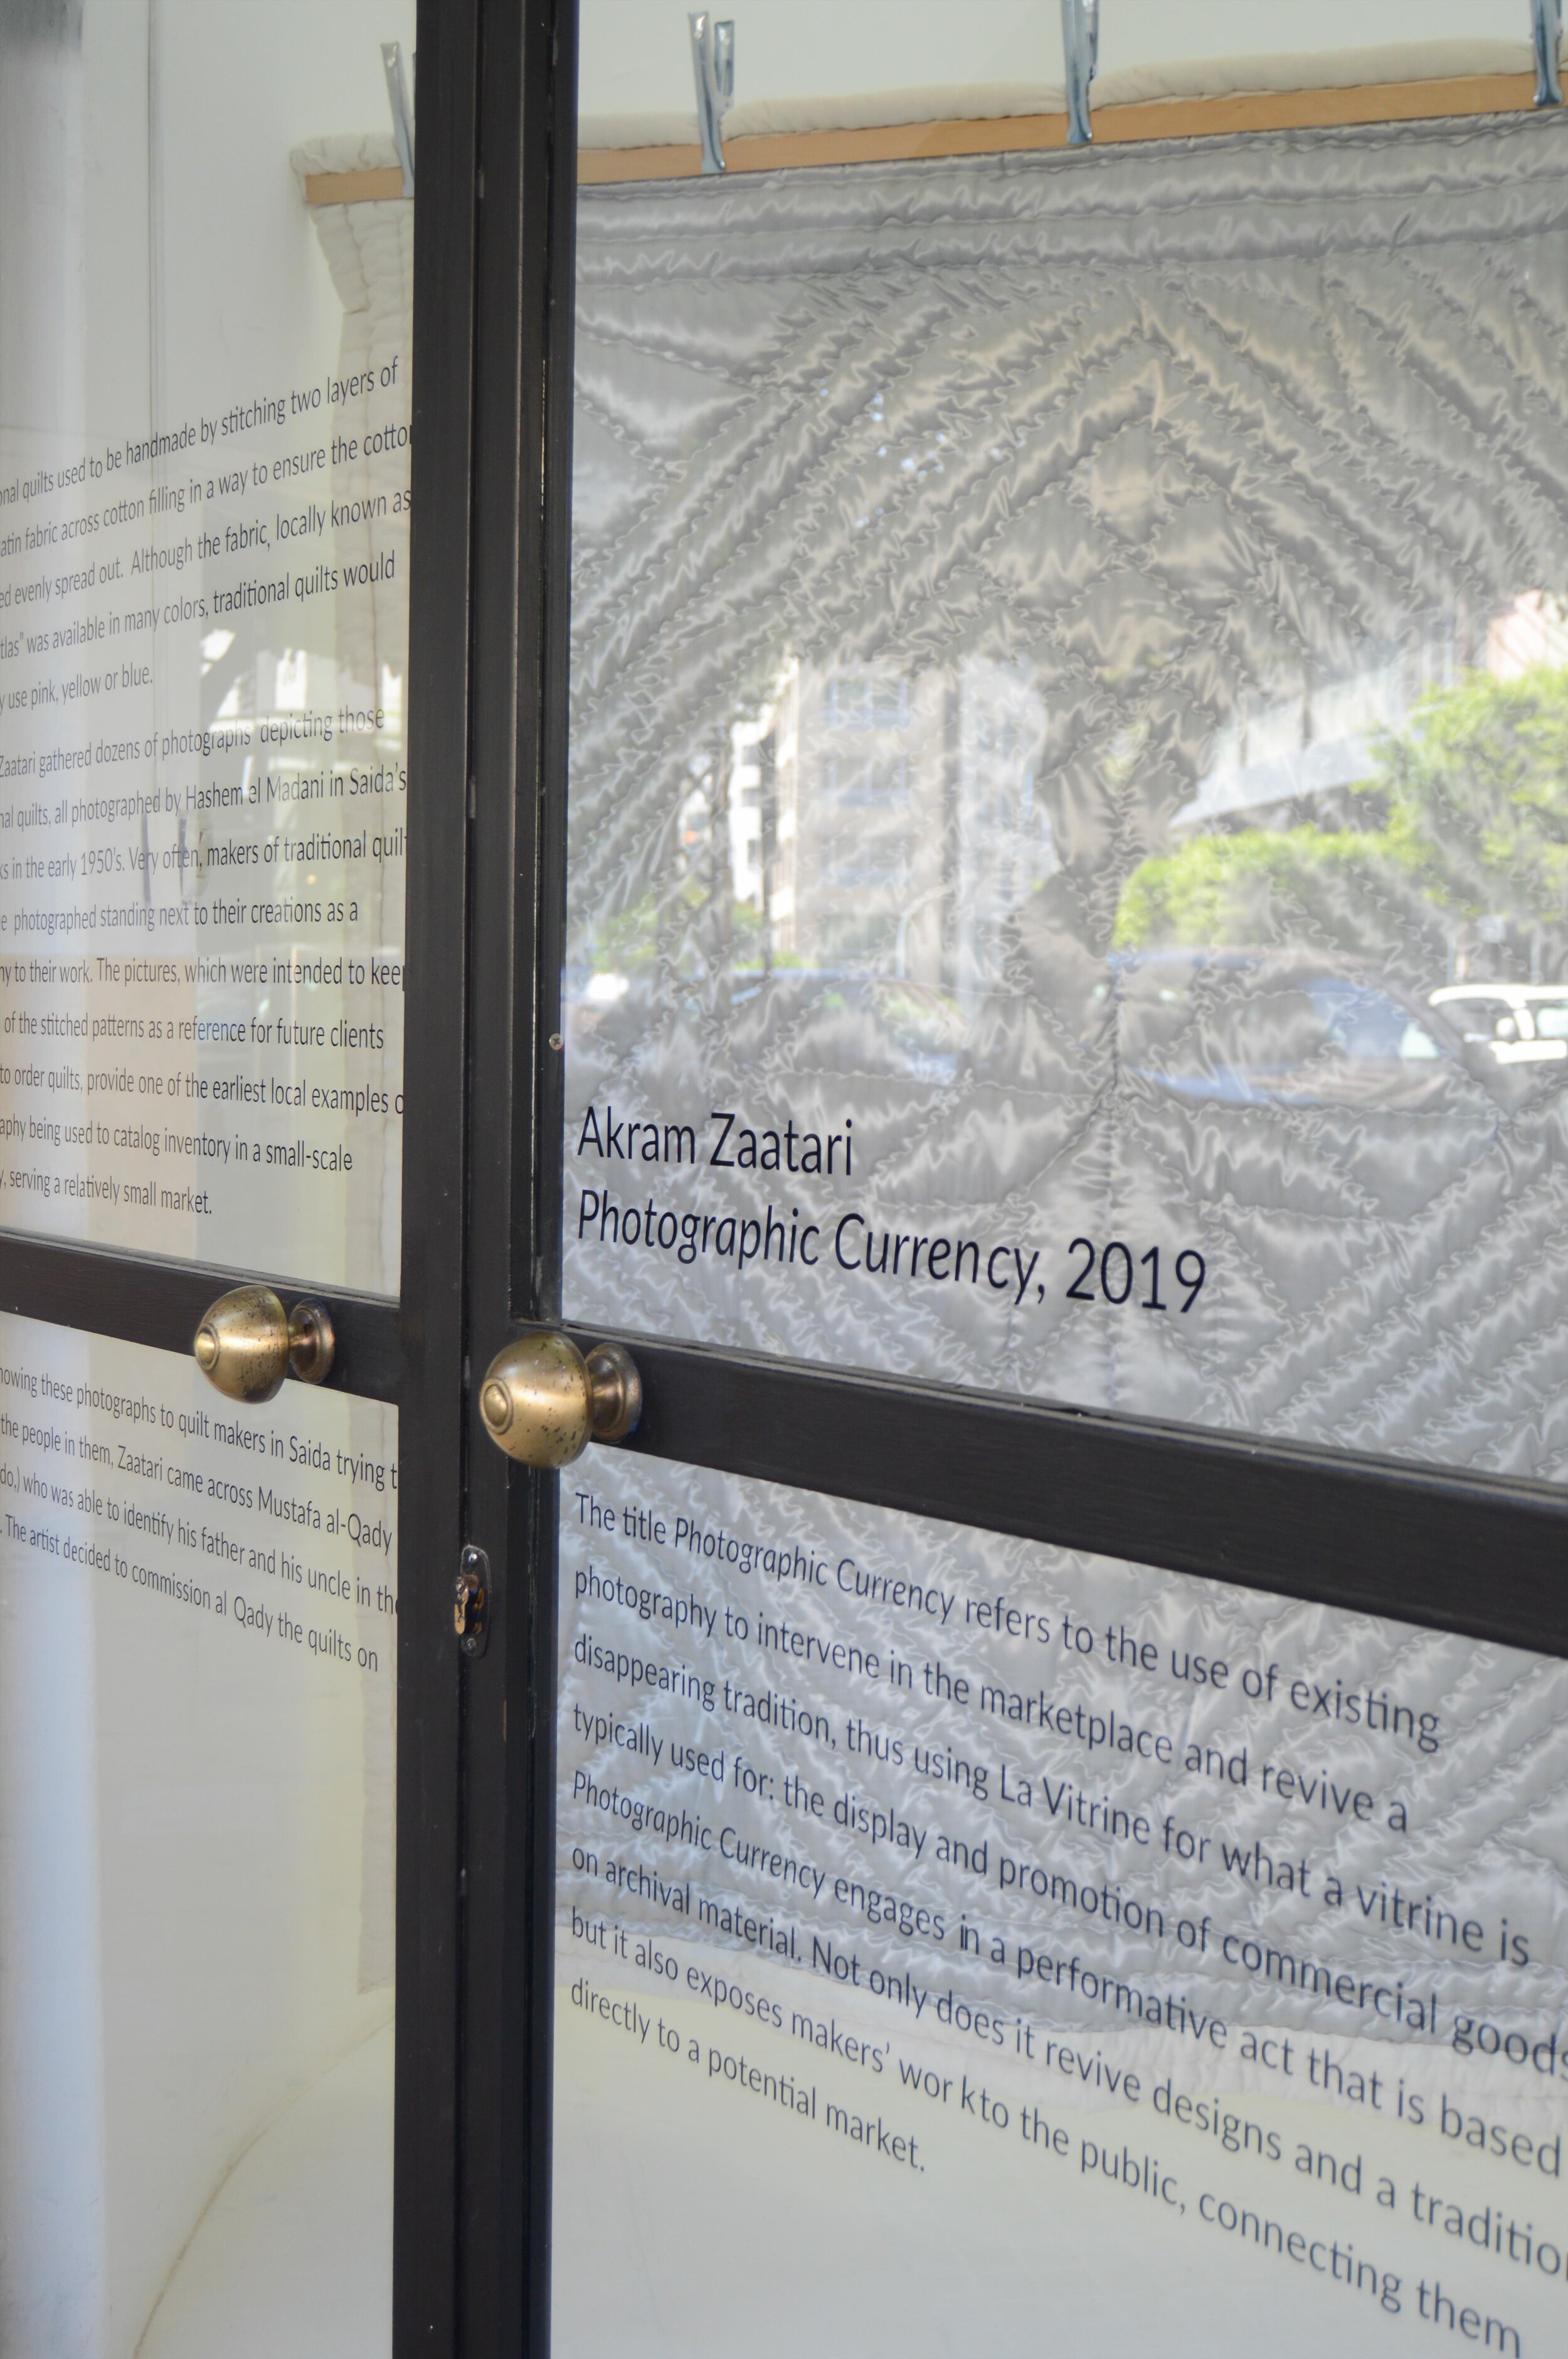 quilts used to be handmade by stitching two layers of
fabric across cotton filling in a way to ensure the
evenly spread out. Although the fabric, locally known as
was available in many colors, traditional quilts would
use pink, yellow or blue.
Zaatari gathered dozens of photographs depicting those
quilts, all photographed by Hashem el Madani in Saida's
in the early 1950's. Very often, makers of traditional
photographed standing next to their creations as a
to their work. The pictures, which were intended to keep
of the stitched patterns as a reference for future clients
to order quilts, provide one of the earliest local examples
being used to catalog inventory in a small-scale
serving a relatively small market.
these photographs to quilt makers in Saida trying
the people in them, Zaatari came across Mustafa al-Qady
who was able to identify his father and his uncle in
The artist decided to commission al Qady the quilts on
Akram Zaatari
Photographic Currency, 2019
The title Photographic Currency refers to the use of existing
photography to intervene in the marketplace and revive a
disappearing tradition, thus using La Vitrine for what a vitrine is
typically used for: the display and promotion of commercial goods
Photographic Currency engages in a performative act that is based
on archival material. Not only does it revive designs and a tradition
but it also exposes makers' wor kto the public, connecting them
directly to a potential market.